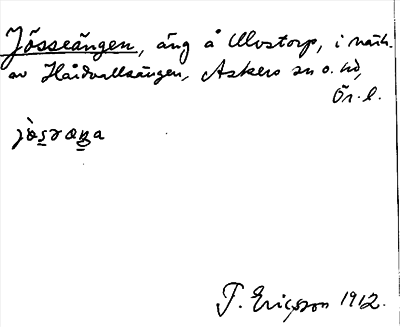 Jösseängen, äng å Ulvstorp, i närh.
av Håidvallsängen, Askers sn o. hd,
Ör. l.
T. Ericsson 1912.